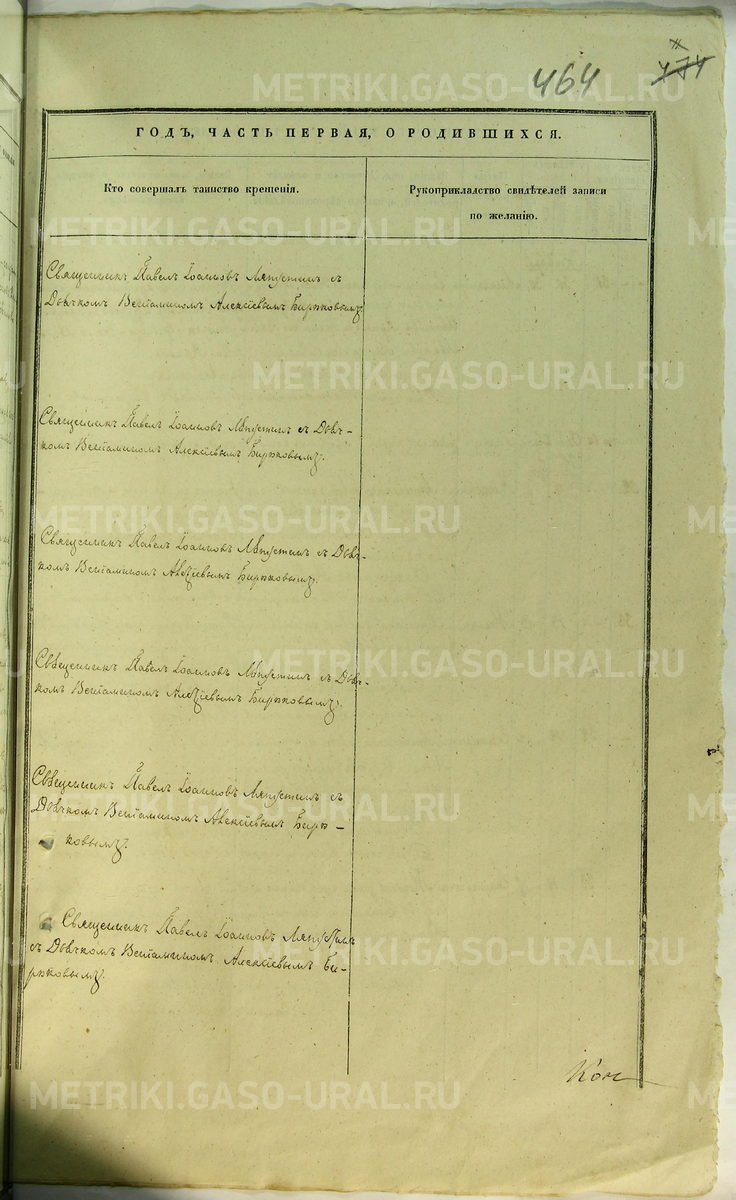 464
474
ГОДЪ, ЧАСТЬ ПЕРВАЯ, О РОДИВШИХСЯ.
Кто совершалъ таинство крещенія.
Рукоприкладство свидѣтелей записи
по желанію.
Священникъ Павелъ Іоанновъ Ляпустинъ съ
Дьячкомъ Веніаминомъ Алексіевымъ Бирюковымъ.
Священникъ Павелъ Іоанновъ Ляпустинъ съ Дьяч-
комъ Веніаминомъ Алексіевымъ Бирюковымъ.
Священникъ Павелъ Іоанновъ Ляпустинъ съ Дьяч-
комъ Веніаминомъ Алексіевымъ Бирюковымъ.
Священникъ Павелъ Іоанновъ Ляпустинъ съ Дьяч-
комъ Веніаминомъ Алексіевымъ Бирюковымъ.
Священникъ Павелъ Іоанновъ Ляпустинъ съ
Дьячкомъ Веніаминомъ Алексіевымъ Бирю-
ковымъ.
Священникъ Павелъ Іоанновъ Ляпустинъ
съ Дьячкомъ Веніаминомъ Алексіевымъ Би-
рюковымъ.
METRIKI.GASO-URAL.RU